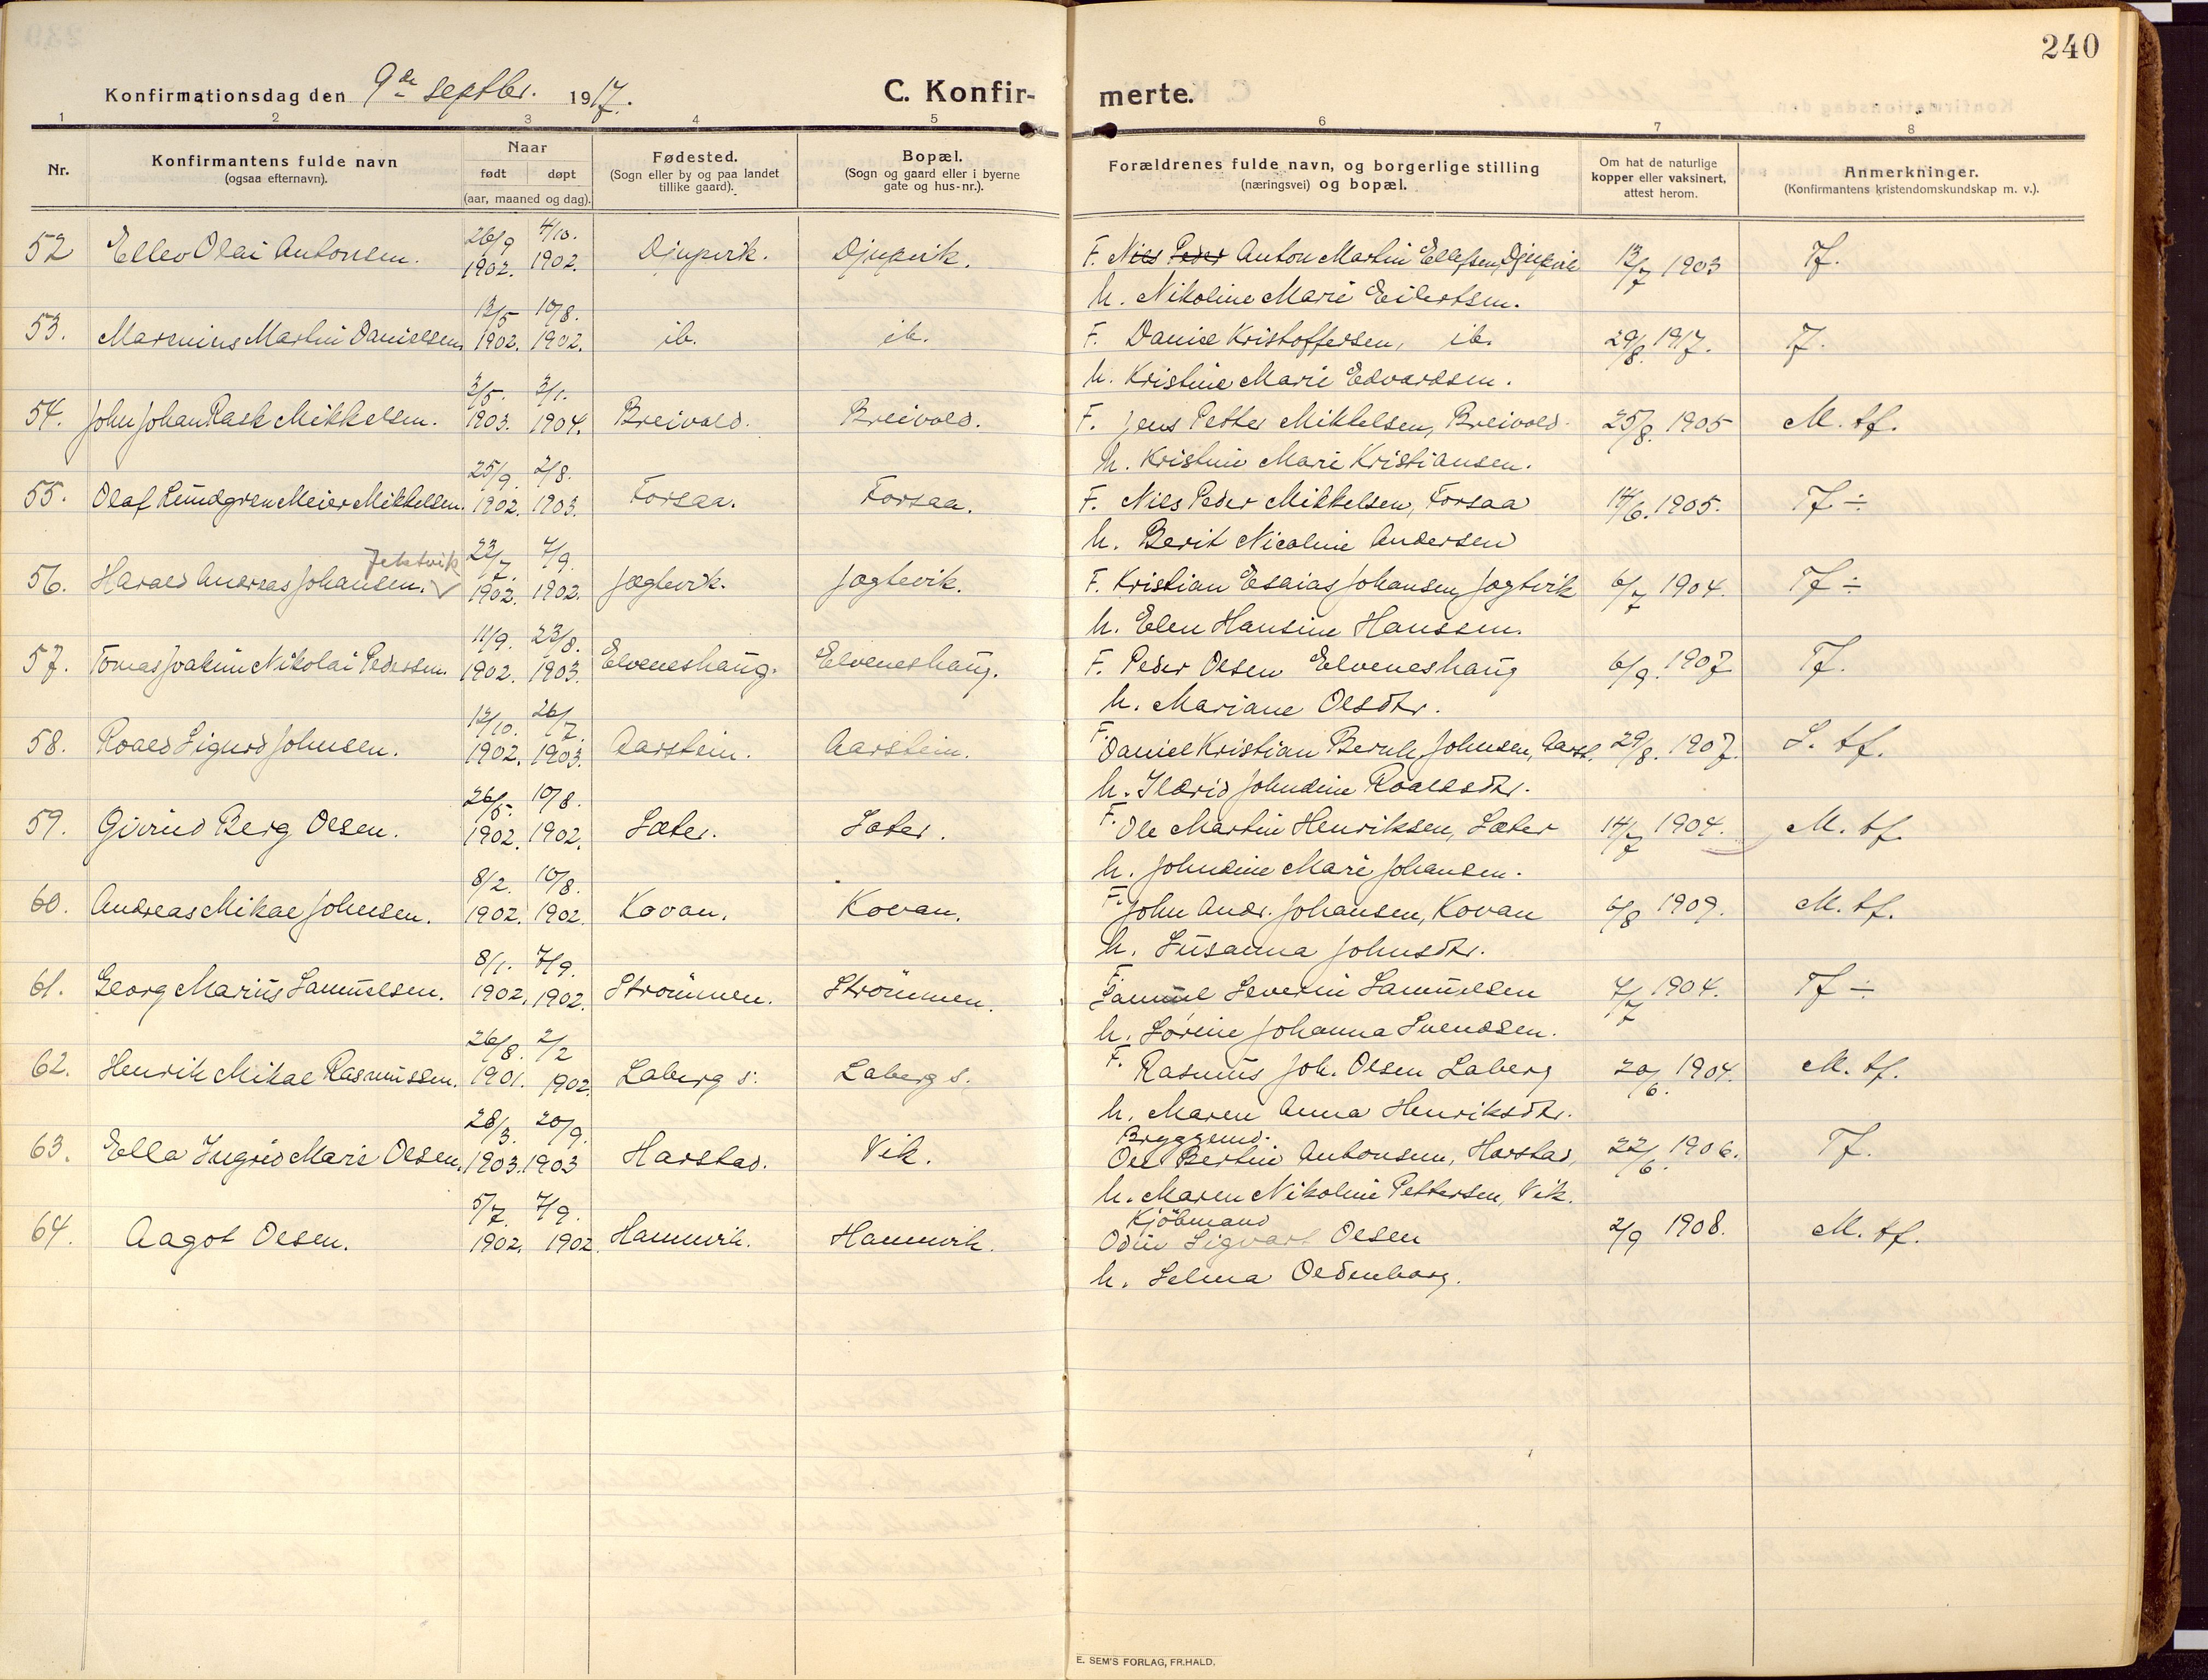 240
Konfirmationsdag den 9de septbr. 1917. C. Konfirmerte.
1 2 3 4 5 6 7 8
Nr. Konfirmantens fulde navn (ogsaa efternavn). Naar født døpt (aar, maaned og dag). Fødested. (Sogn eller by og paa landet tillike gaard). Bopæl. (Sogn og gaard eller i byerne gate og hus-nr.). Forældrenes fulde navn, og borgerlige stilling (næringsvei) og bopæl. Om hat de naturlige kopper eller vaksinert, attest herom. Anmerkninger. (Konfirmantens kristendomskundskap m. v.).
52 Ellev Olai Antonsen. 26/9 1902. 4/10. 1902. Djupvik. Djupvik. F. Niels Peder Anton Martin Ellefsen, Djupvik 13/7 1903 Tf.
M. Nikoline Marie Eilertsen.
53. Marenius Martin Danielsen. 12/5 1902. 10/8. 1902. ib. ib. F. Daniel Kristoffersen, ib. 29/8. 1917. Tf.
M. Kristine Marie Edvardsen.
54. John Johan Rask Mikkelsen. 3/5. 1903. 3/1. 1904. Breivold. Breivold. F. Jens Petter Mikkelsen, Breivold. 25/8. 1905 M. tf.
M. Kristine Marie Kristiansen.
55. Olaf Lundgren Meier Mikkelsen. 25/9. 1902. 2/8. 1903. Forsaa. Forsaa. F. Niels Peder Mikkelsen, Forsaa 14/6. 1905. Tf ÷
M. Berit Nicoline Andersen
56. Harald Andreas Johansen. Jektvik 22/7. 1902. 7/9. 1902. Jægtevik. Jægtevik. F. Kristian Esaias Johansen, Jægtvik 6/7 1904. Tf ÷
M. Elen Hansine Hanssen.
57. Tomas Joakim Nikolai Pedersen. 11/9. 1902. 23/8. 1903. Elveneshaug. Elveneshaug. F. Peder Olsen Elveneshaug 6/9. 1907 Tf.
M. Mariane Olsdtr.
58. Roald Sigurd Johnsen. 12/10. 1902. 26/7. 1903. Aarstein. Aarstein. F. Daniel Kristian Bernh. Johnsen, Aarst. 29/8. 1907. S. tf.
M. Ildrid Johndine Roaldsdtr.
59. Givind Berg Olsen. 26/5. 1902. 10/8. 1902. Sæter. Sæter. F. Ole Martin Henriksen, Sæter 14/7 1904. M. tf.
M. Johndine Marie Johansen.
60. Andreas Mikal Johnsen. 8/2. 1902. 10/8. 1902. Kovan. Kovan. F. John Andr. Johansen, Kovan 6/8 1909. M. tf.
M. Susanna Johnsdtr.
61. Georg Marius Samuelsen. 8/1. 1902. 7/9. 1902. Strømmen. Strømmen. F. Samuel Severin Samuelsen 7/7 1904. Tf ÷
M. Sørine Johanna Svendsen.
62. Henrik Mikal Rasmussen. 26/8. 1901. 2/2 1902. Laberg s. Laberg s. F. Rasmus Joh. Olsen Laberg 20/6. 1904. M. tf.
M. Maren Anna Henriksdtr.
63. Ella Ingrid Marie Olsen. 28/3. 1903. 20/9. 1903 Harstad. Vik. Bryggemd. Ole Bertin Antonsen, Harstad, 22/6. 1906. Tf.
M. Maren Nikoline Pettersen, Vik.
64. Aagot Olsen. 5/7. 1902. 7/9. 1902. Hamnvik. Hamnvik. Kjøbmand Odin Sigvart Olsen 2/9 1908. M. tf.
M. Selma Oldenborg.
E. SEM'S FORLAG, FR.HALD.